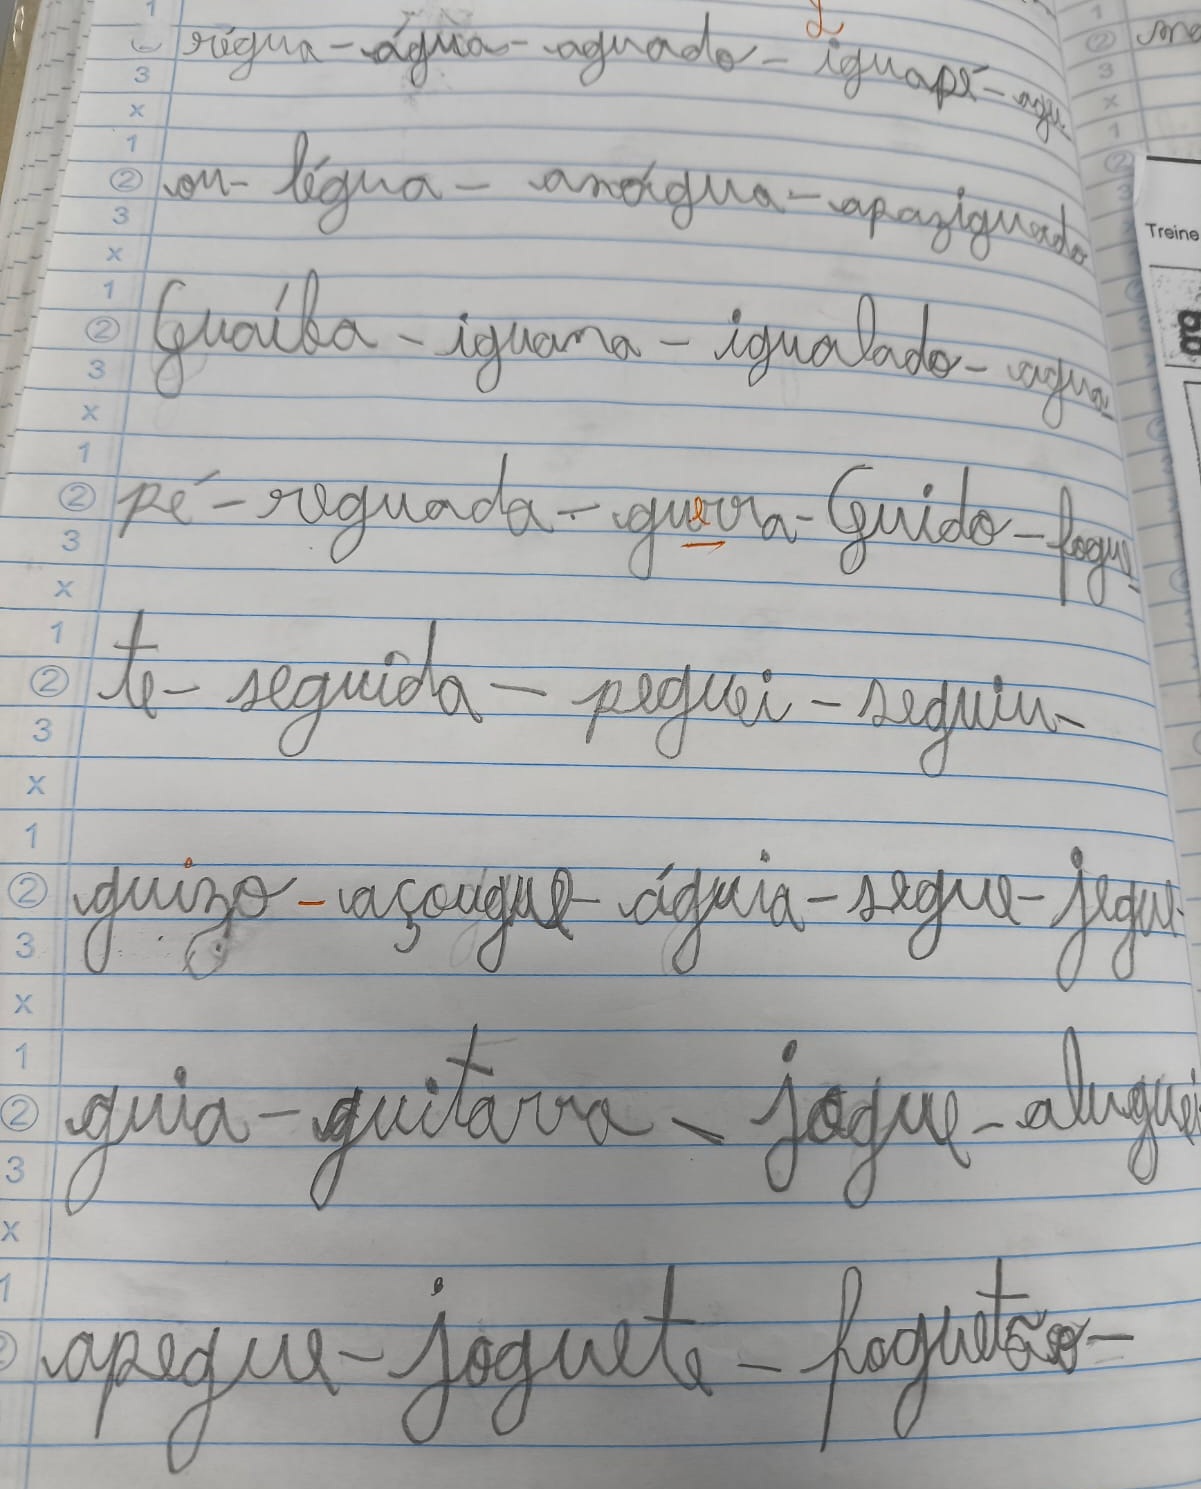 régua - água - aguado - iguapé - agu-
ou - légua - anágua - apaziguado
Guaíba - iguana - igualado - agua-
pé - reguada - guerra - Guido - fogue-
te - seguida - peguei - seguiu -
guizo - açougue - águia - segue - jegue
guia - guitarra - jogue - aluguei
apegue - joguete - foguetão -
Treine
g